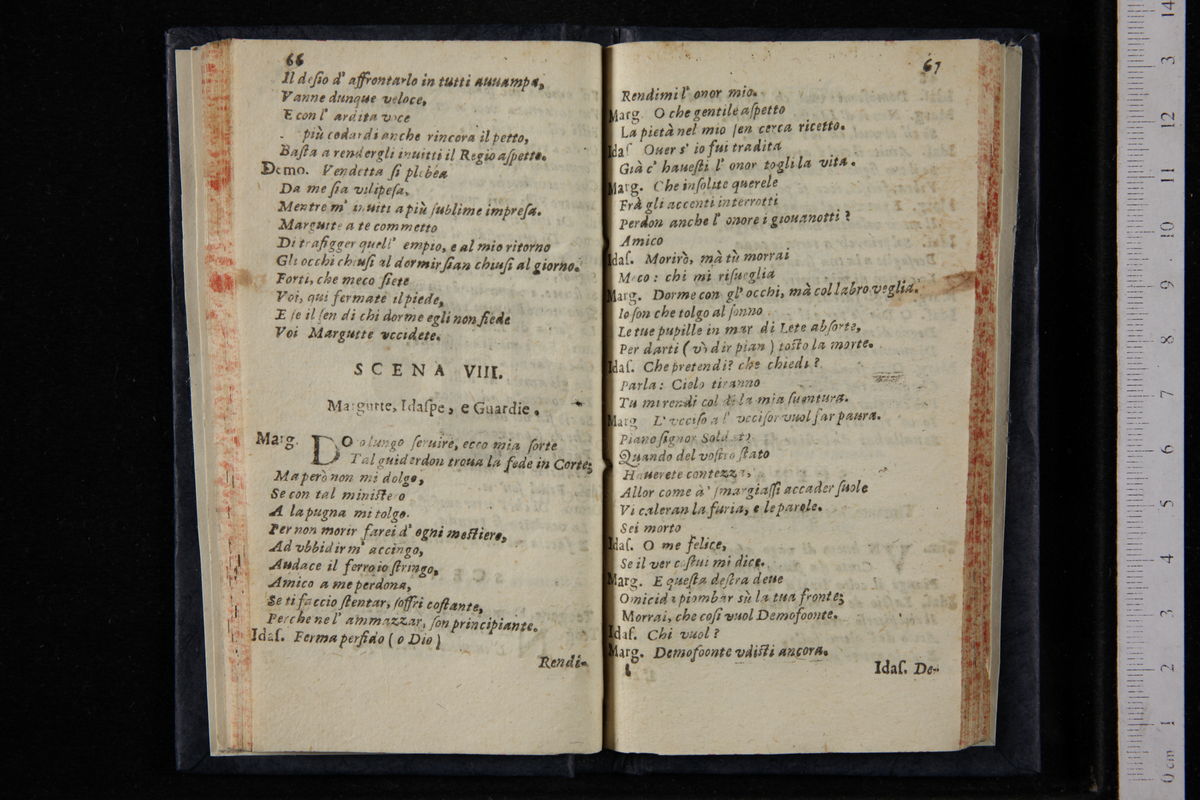 66
Il deſio d' affrontarlo in tutti auuampa,
Vanne dunque veloce,
E con l' ardita voce
più codardi anche rincora il petto,
Baſta a rendergli inuitti il Regio aſpetto.
Demo. Vendetta ſi plebea
Da me ſia vilipeſa,
Mentre m' inuiti a più ſublime impreſa.
Margutte a te commetto
Di trafigger quell' empio, e al mio ritorno
Gli occhi chiuſi al dormir ſian chiuſi al giorno.
Forti, che meco ſiete
Voi, qui fermate il piede,
E ſe il ſen di chi dorme egli non fiede
Voi Margutte vccidete.
SCENA VIII.
Margutte, Idaſpe, e Guardie.
Marg. DOpo lungo ſeruire, ecco mia ſorte
Tal guiderdon troua la fede in Corte;
Ma però non mi dolgo,
Se con tal miniſtero
A la pugna mi tolgo.
Per non morir farei d' ogni meſtiero,
Ad vbbidir m' accingo,
Audace il ferro io ſtringo,
Amico a me perdona,
Se ti faccio ſtentar, ſoffri coſtante,
Perche ne l' ammazzar, ſon principiante.
Idaſ. Ferma perfido (o Dio)
Rendi-
67
Rendimi l' onor mio.
Marg. O che gentile aſpetto
La pietà nel mio ſen cerca ricetto.
Idaſ Ouer s' io fui tradita
Già c' haueſti l' onor togli la vita.
Marg. Che inſolite querele
Frà gli accenti interrotti
Perdon anche l' onore i giouanotti?
Amico
Idaſ. Morirò, mà tù morrai
Meco: chi mi riſueglia
Marg. Dorme con gl' occhi, mà col labro veglia.
Io ſon che tolgo al ſonno
Le tue pupille in mar di Lete abſorte,
Per darti (vò dir pian) toſto la morte.
Idaſ. Che pretendi? che chiedi?
Parla: Cielo tiranno
Tu mi rendi col dì la mia ſuentura.
Marg L' vcciſo a l' vcciſor vuol far paura.
Piano ſignor Soldato
Quando del voſtro ſtato
Hauerete contezza,
Allor come à' ſmargiaſſi accader ſuole
Vi caleran la furia, e le parole.
Sei morto
Idaſ. O me felice,
Se il ver coſtui mi dice.
Marg. E queſta deſtra deue
Omicida piombar sù la tua fronte;
Morrai, che coſi vuol Demofoonte.
Idaſ. Chi vuol?
Marg. Demofoonte vdiſti ancora.
Idaſ. De-